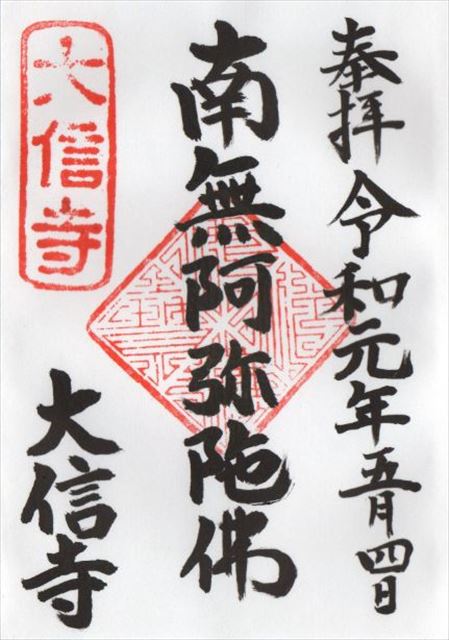 奉拝 令和元年五月四日
南無阿弥陀佛
大信寺
大信寺